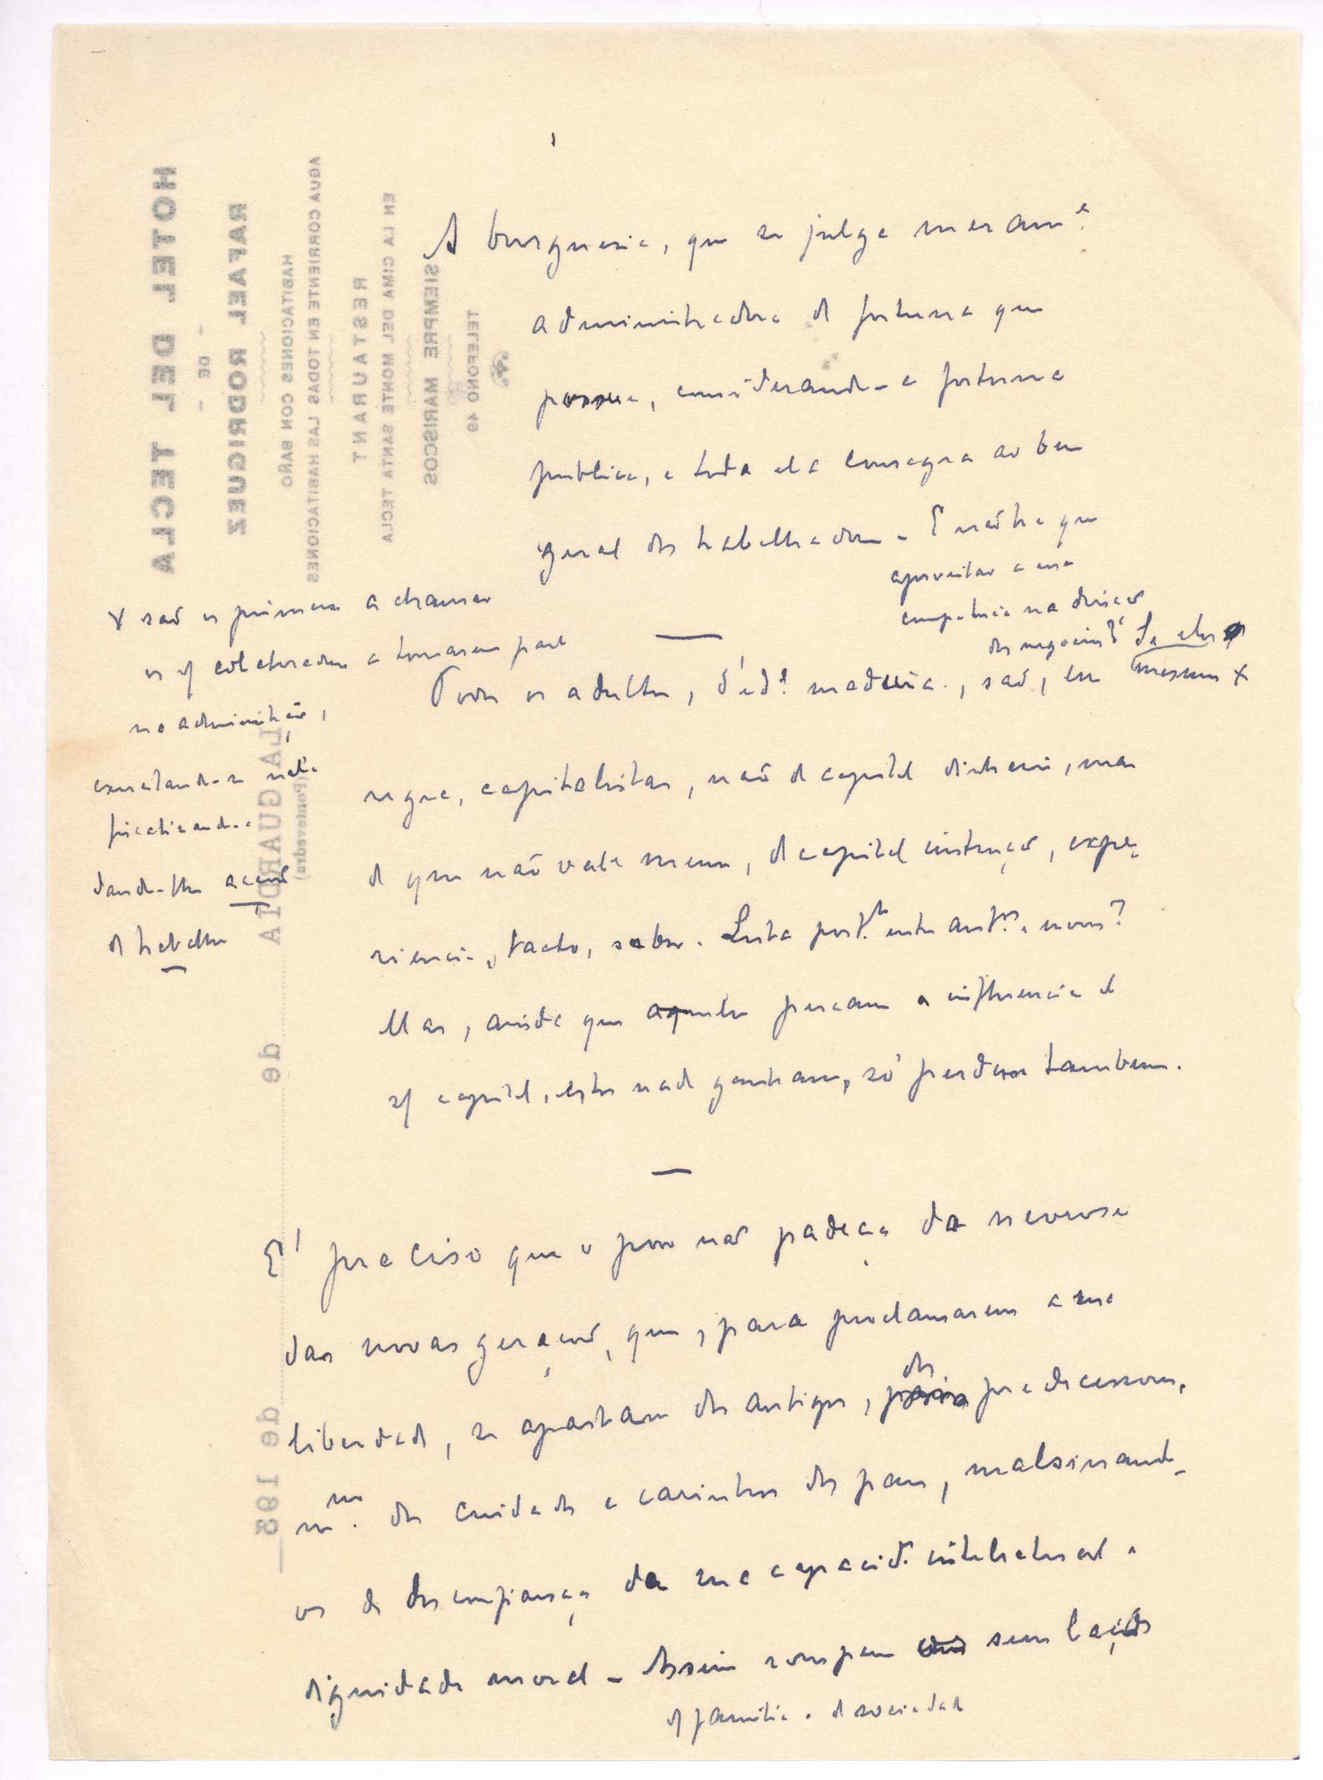 A burguesia, que se julga meram.e
administradora de fortuna que
possue, considerando-a fortuna
publica, e toda ela consagra ao bem
geral dos trabalhadores. E não ha que
aproveitar a sua
competencia na direcção
dos negocios? De eles
mesmos x
x são os primeiros a chamar
os colaboradores a tomarem parte
na administração,
dando-lhe acção
de trabalho
—
Todos os adultos, d'id.e madura, são, em
regra, capitalistas, não de capital dinheiro, mas
de que não vale menos, de capital instrução, expe-
riencia, tacto, saber. Luta port.to entre ant.os e novos?
Mas, ainda que aqueles percam a influencia e
capital, estes nada ganham, só perdem tambem.
—
É preciso que o povo não padeça da nevrose
das novas gerações, que, para proclamarem a sua
liberdade, se apartam dos antigos, dos predecessores,
mm.o dos cuidados e carinhos dos paes, malsinando-
os de desconfiança da sua capacid.e intelectual e
dignidade moral. Assim rompem sem laços
de familia e de sociedade
HOTEL DEL TECLA
- DE -
RAFAEL RODRIGUEZ
HABITACIONES CON BAÑO
AGUA CORRIENTE EN TODAS LAS HABITACIONES
RESTAURANT
EN LA CIMA DEL MONTE SANTA TECLA
SIEMPRE MARISCOS
TELEFONO 49
LA GUARDIA
(Pontevedra)
de
de 192